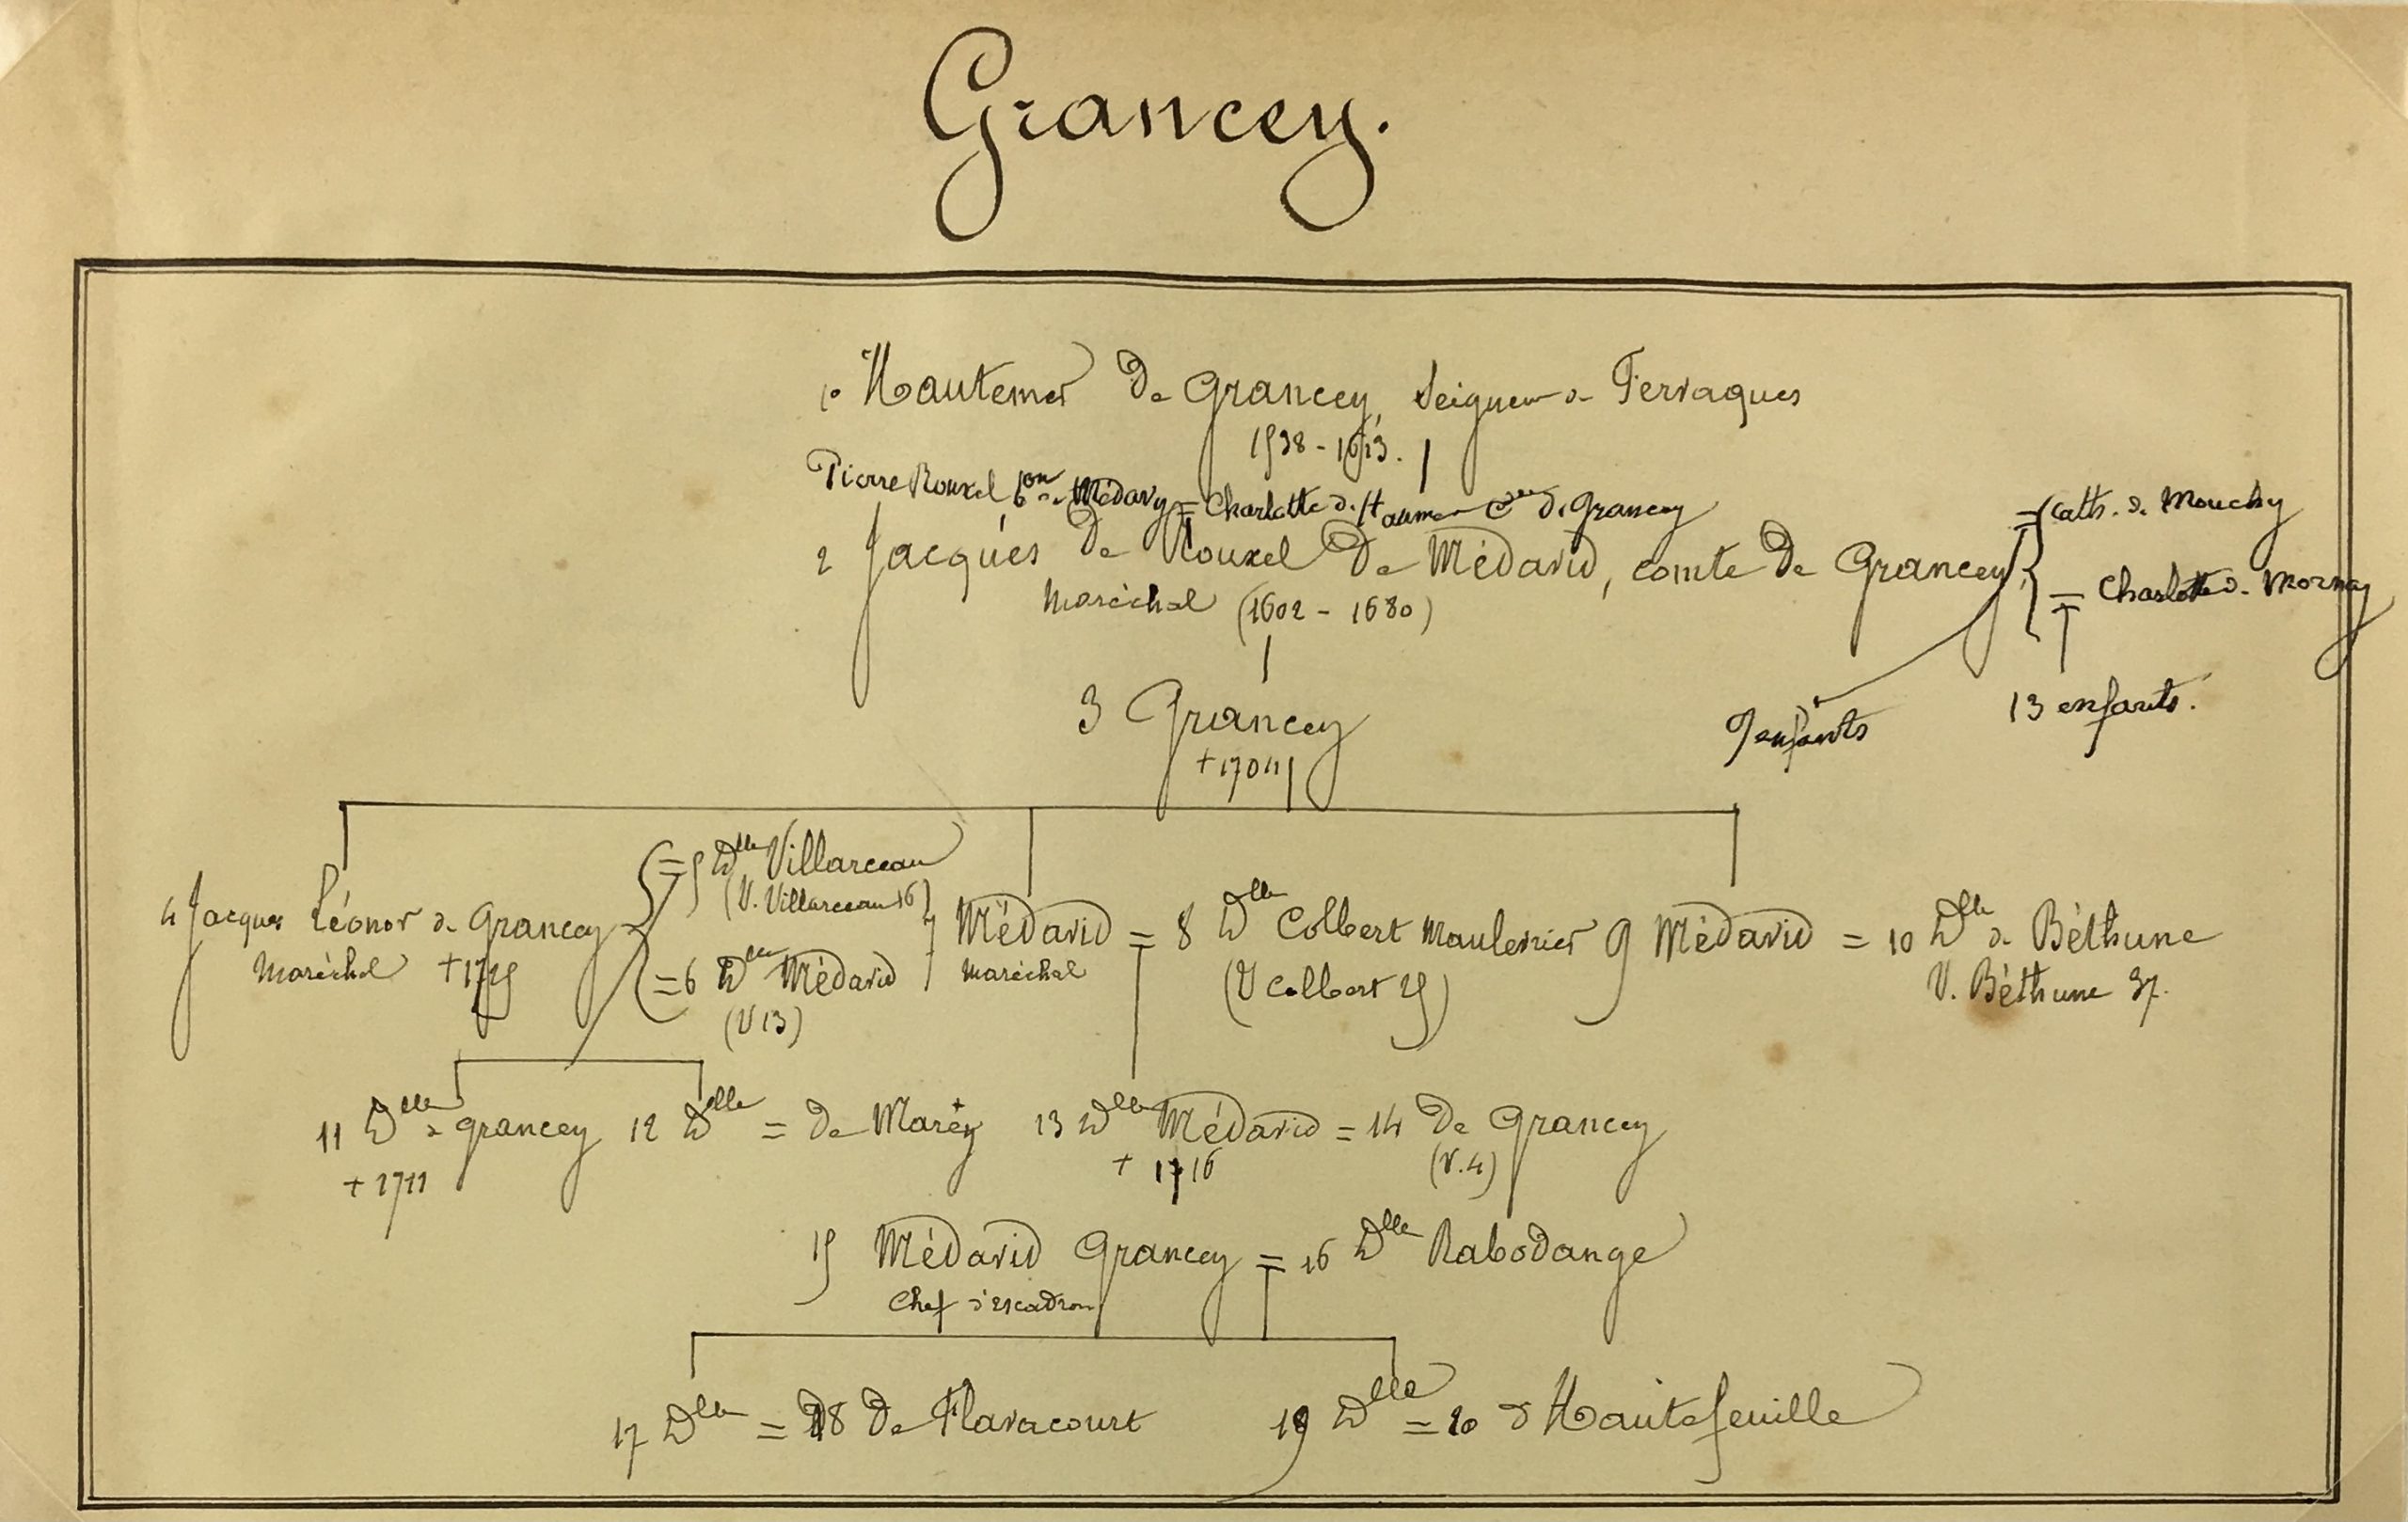 Grancey.
1º Hautemer de Grancey, Seigneur de Fervaques
1538 - 1613.
Pierre Rouxel, bon de Médavy = Charlotte d. Hautemer Csse d. Grancey
2 Jacques de Rouxel de Médavid, comte de Grancey
Maréchal (1602 - 1680)
= Cath. d. Mouchy
= Charlotte d. Mornay
9 enfants
13 enfants.
3 Grancey
+ 1704
4 Jacques Léonor de Grancey
Maréchal + 1725
= 5 Dlle Villarceau
(V. Villarceau 16)
= 6 Dlle Médavid
(V 13)
7 Médavid = 8 Dlle Colbert Maulevrier
Maréchal
(V Colbert 25)
9 Médavid = 10 Dlle de Béthune
V. Béthune 37.
11 Dlle de Grancey
+ 1711
12 Dlle = de Marey
13 Dlle Médavid = 14 de Grancey
+ 1716
(V. 4)
15 Médavid Grancey = 16 Dlle Rabodange
Chef d'escadron
17 Dlle = 18 de Flavacourt
19 Dlle = 20 d'Hautefeuille